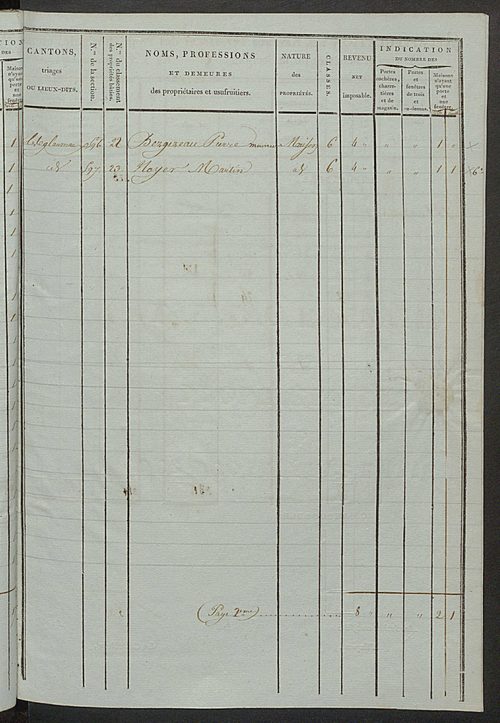 CANTONS,
triages
OU LIEUX-DITS.
N.os de la section.
N.os du classement
des propriétés bâties.
NOMS, PROFESSIONS
ET DEMEURES
des propriétaires et usufruitiers.
NATURE
des
PROPRIÉTÉS.
CLASSES.
REVENU
NET
imposable.
INDICATION
DU NOMBRE DES
Portes
cochères,
charre-
tières
et de
magasin.
Portes
et
fenêtres
de trois
et
Maisons
n'ayant
qu'une
porte
et
une
fenêtre.
22 Pierre Maison 6 4 " " " 1
id 597 23 Noyer Martin id 6 4 " " " 1 1
(Page 7eme) 8 " " " 2 1